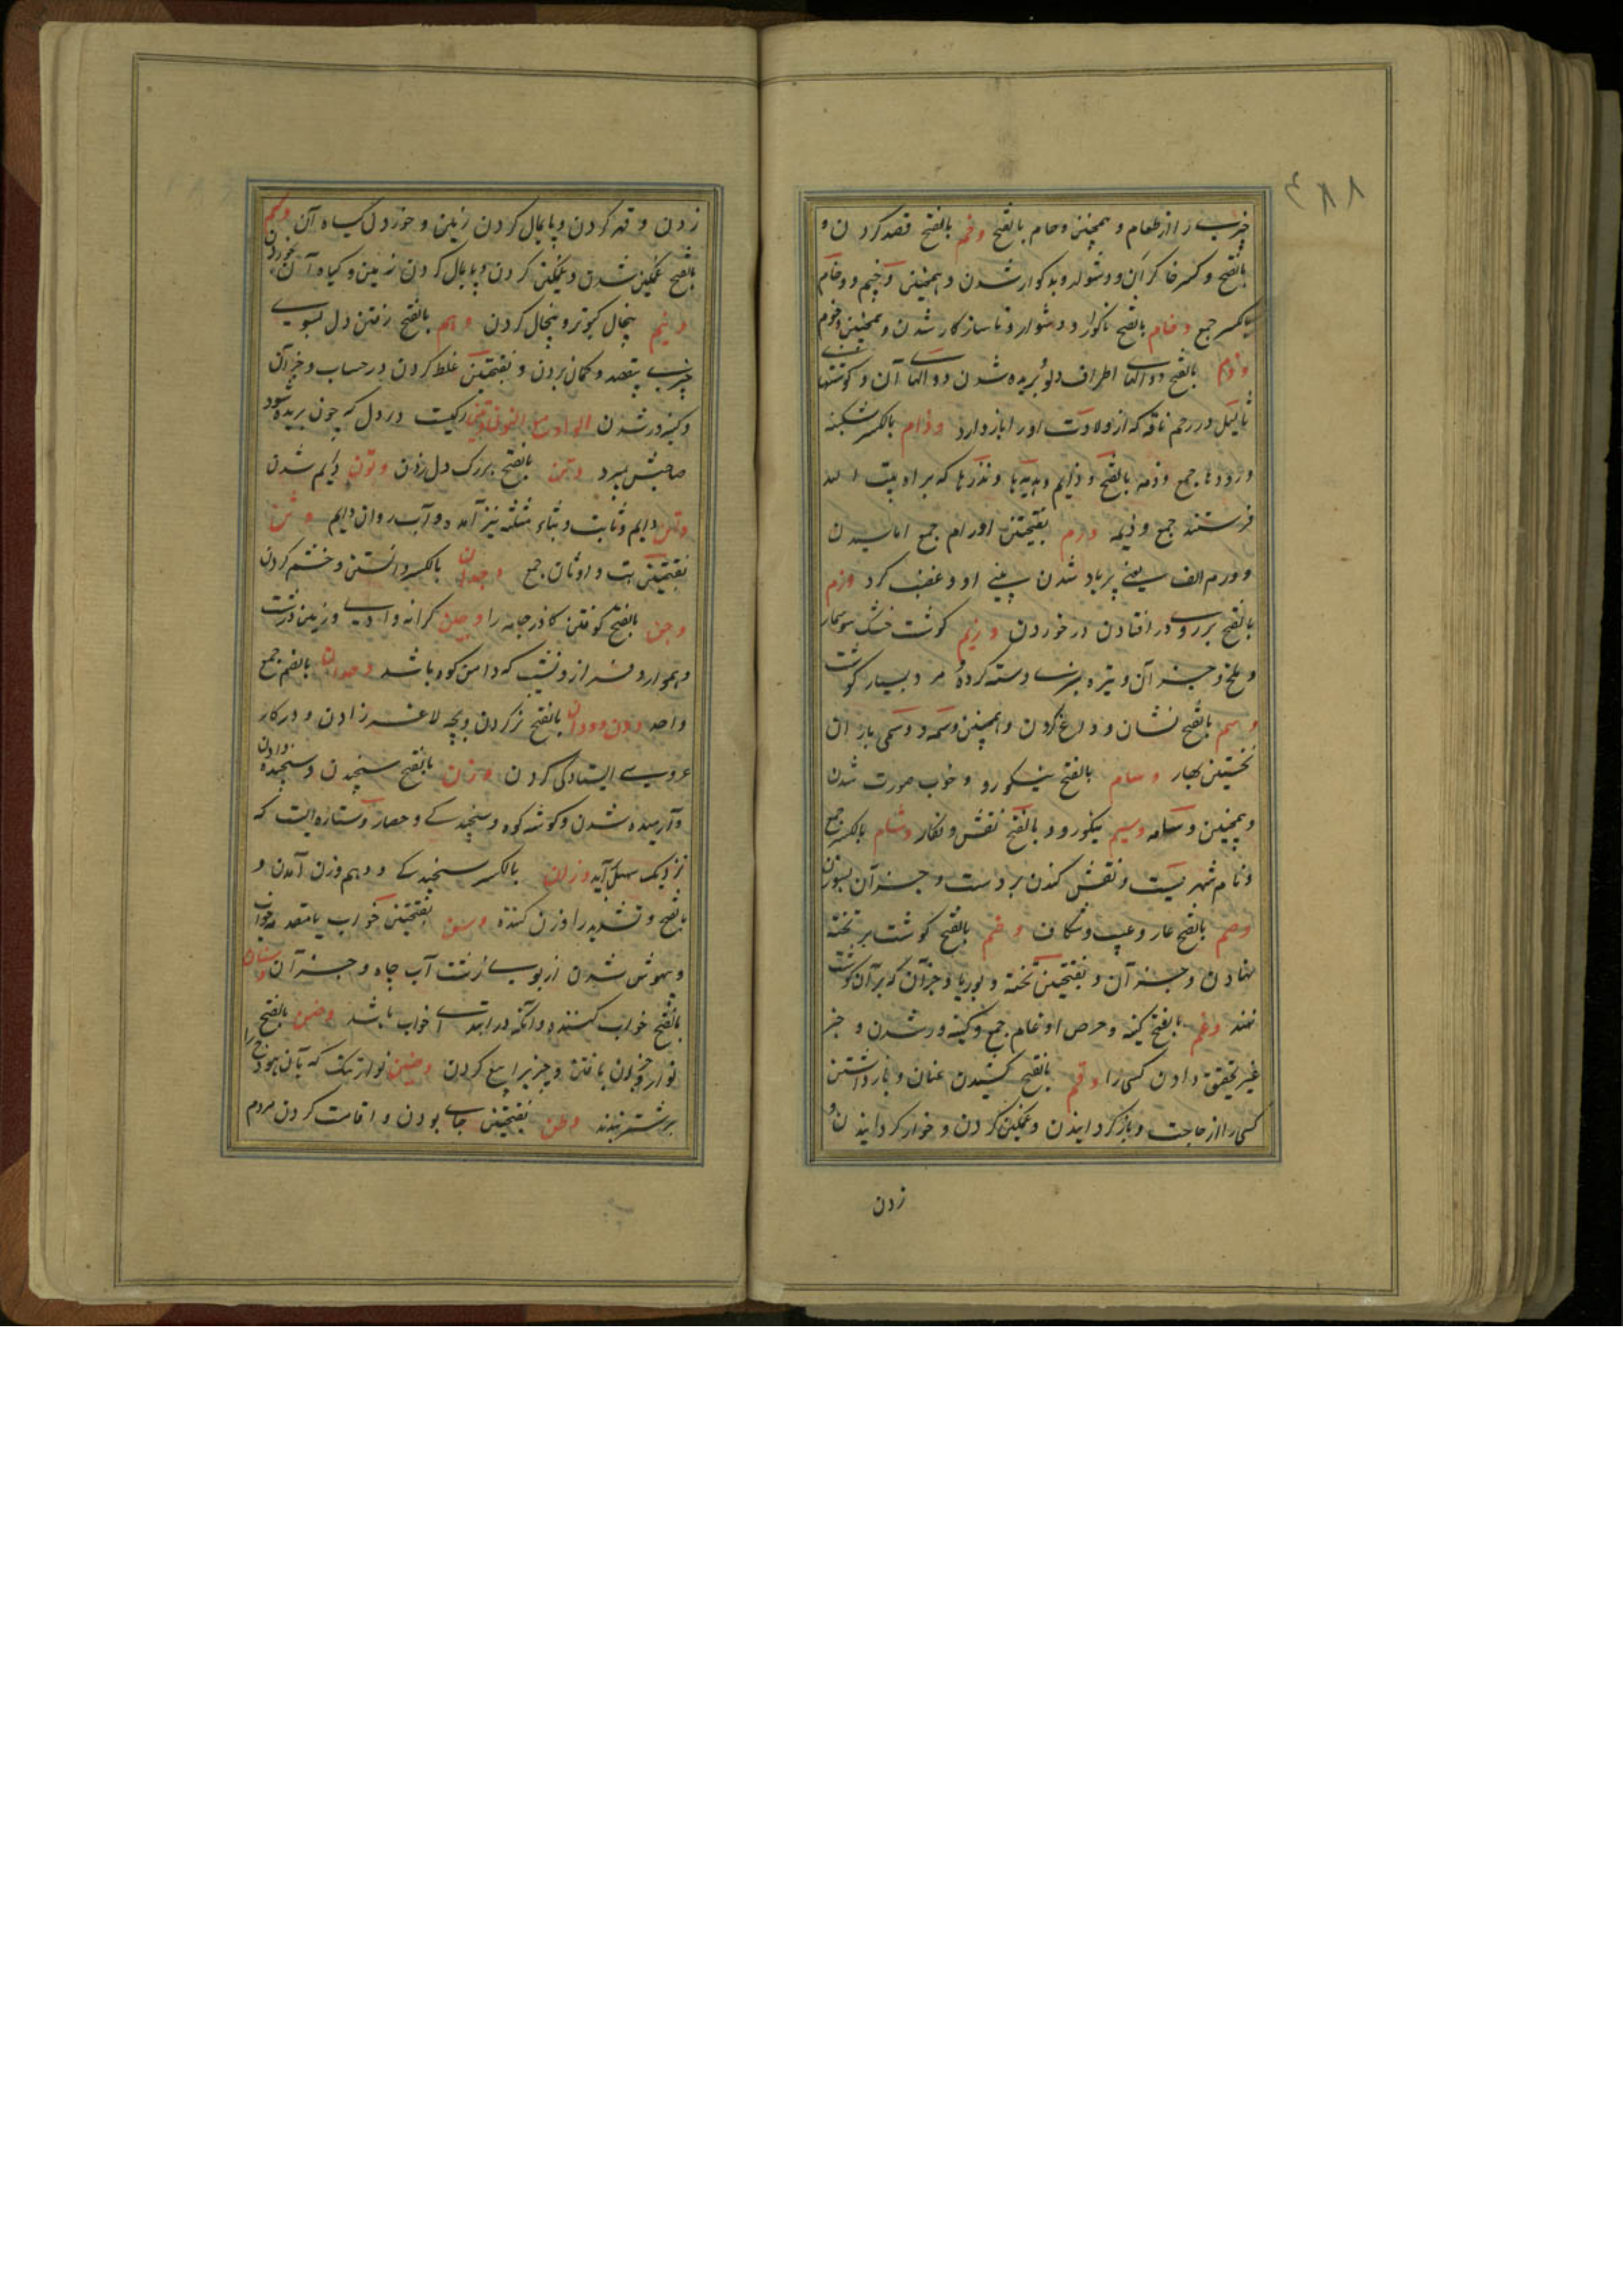 ٤٨٨
چیزی را از طعام و همچنین وحام بالفتح وخم بالفتح قصد کردن و
بالفتح و کسر خا گران و دشوار و بدگوار شدن و همچنین وخیم و وخام
بالکسر جمع وخام بالفتح ناگوار و دشوار و ناسازگار شدن و همچنین وخوم
وذم بالفتح دوالهای اطراف دلو بریده شدن دوالهای آن و گوشتها
ثالیل در رحم ناقه که از ولادت او را باز دارد وذام بالکسر شکنبه
و رودها جمع وذمه بالفتح وذایم و هدیه‌ها و نذرها که برای بیت الله
فرستند جمع وذیمه ورم بفتحتین اورام جمع اماسیدن
و ورم الف یعنی پرباد شدن بینی او و غضب کرد وزم
بالفتح بر روی در افتادن در خوردن وزیم گوشت خشک سوسمار
و ملخ و جز آن و تره و سبزی دسته کرده مرد بسیار گوشت
وسم بالفتح نشان و داغ کردن و همچنین وسمه و وسمی باران
نخستین بهار وسام بالفتح نیکو رو و خوب صورت شدن
و همچنین وسامه وسیم نیکو رو و بالفتح نقش و نگار وشام بالکسر جمع
و نام شهریست و نقش کندن بر دست و جز آن بسوزن
وصم بالفتح عار و عیب و شکاف وضم بالفتح گوشت بر تخته
نهادن و جز آن و بفتحتین تخته و بوریا و جز آن که بر آن گوشت
نهند وغم بالفتح کینه و حرص اوغام جمع و کینه ور شدن و خبر
غیر تحقیق دادن کسی را وقم بالفتح کشیدن عنان و بازداشتن
کسی را از حاجت و باز گردانیدن و غمگین کردن و خوار گردانیدن و
زدن
زدن و قهر کردن و پایمال کردن زمین و خوردن گیاه آن وکم
بالفتح غمگین شدن و غمگین کردن و پایمال کردن زمین و گیاه آن خوردن
ونیم پنچال کبوتر و پنچال کردن وهم بالفتح رفتن دل بسوی
چیزی بیقصد و گمان بردن و بفتحتین غلط کردن در حساب و جز آن
و کینه ور شدن الواو مع النون وتین رگیست در دل که چون بریده شود
صاحبش بمیرد وتن بالفتح بر رگ دل زدن وتون دایم شدن
واتن دایم و ثابت و بثاء مثلثه نیز آمده و آب روان دایم وثن
بفتحتین بت و اوثان جمع وجدان بالکسر دانستن و خشم کردن
وجن بالفتح کوفتن گازر جامه را وجین کرانه وادی و زمین درشت
و هموار و فراز و نشیب که دامن کوه باشد وحدان بالضم جمع
واحد ودن وودان بالفتح تر کردن و بچه لاغر زادن و در کار
عروسی ایستادگی کردن وزن بالفتح سنجیدن و سنجیده دادن
و آرمیده شدن و گوشه کوه و سنجیدگی و حصار و ستاره ایست که
نزدیک سهیل آید وزان بالکسر سنجیدگی و هم وزن آمدن و
بالفتح و تشدید را وزن کننده وسن بفتحتین خواب یا مقدمه خواب
و بیهوش شدن از بوی زشت آب چاه و جز آن وسنان
بالفتح خواب کننده و آنکه در ابتدای خواب باشد وضین بالفتح
نوار و جز آن بافتن و چیز بر آیی کردن وضین نوار تنگ که بآن هودج را
بر شتر بندند وطن بفتحتین جای بودن و اقامت کردن مردم